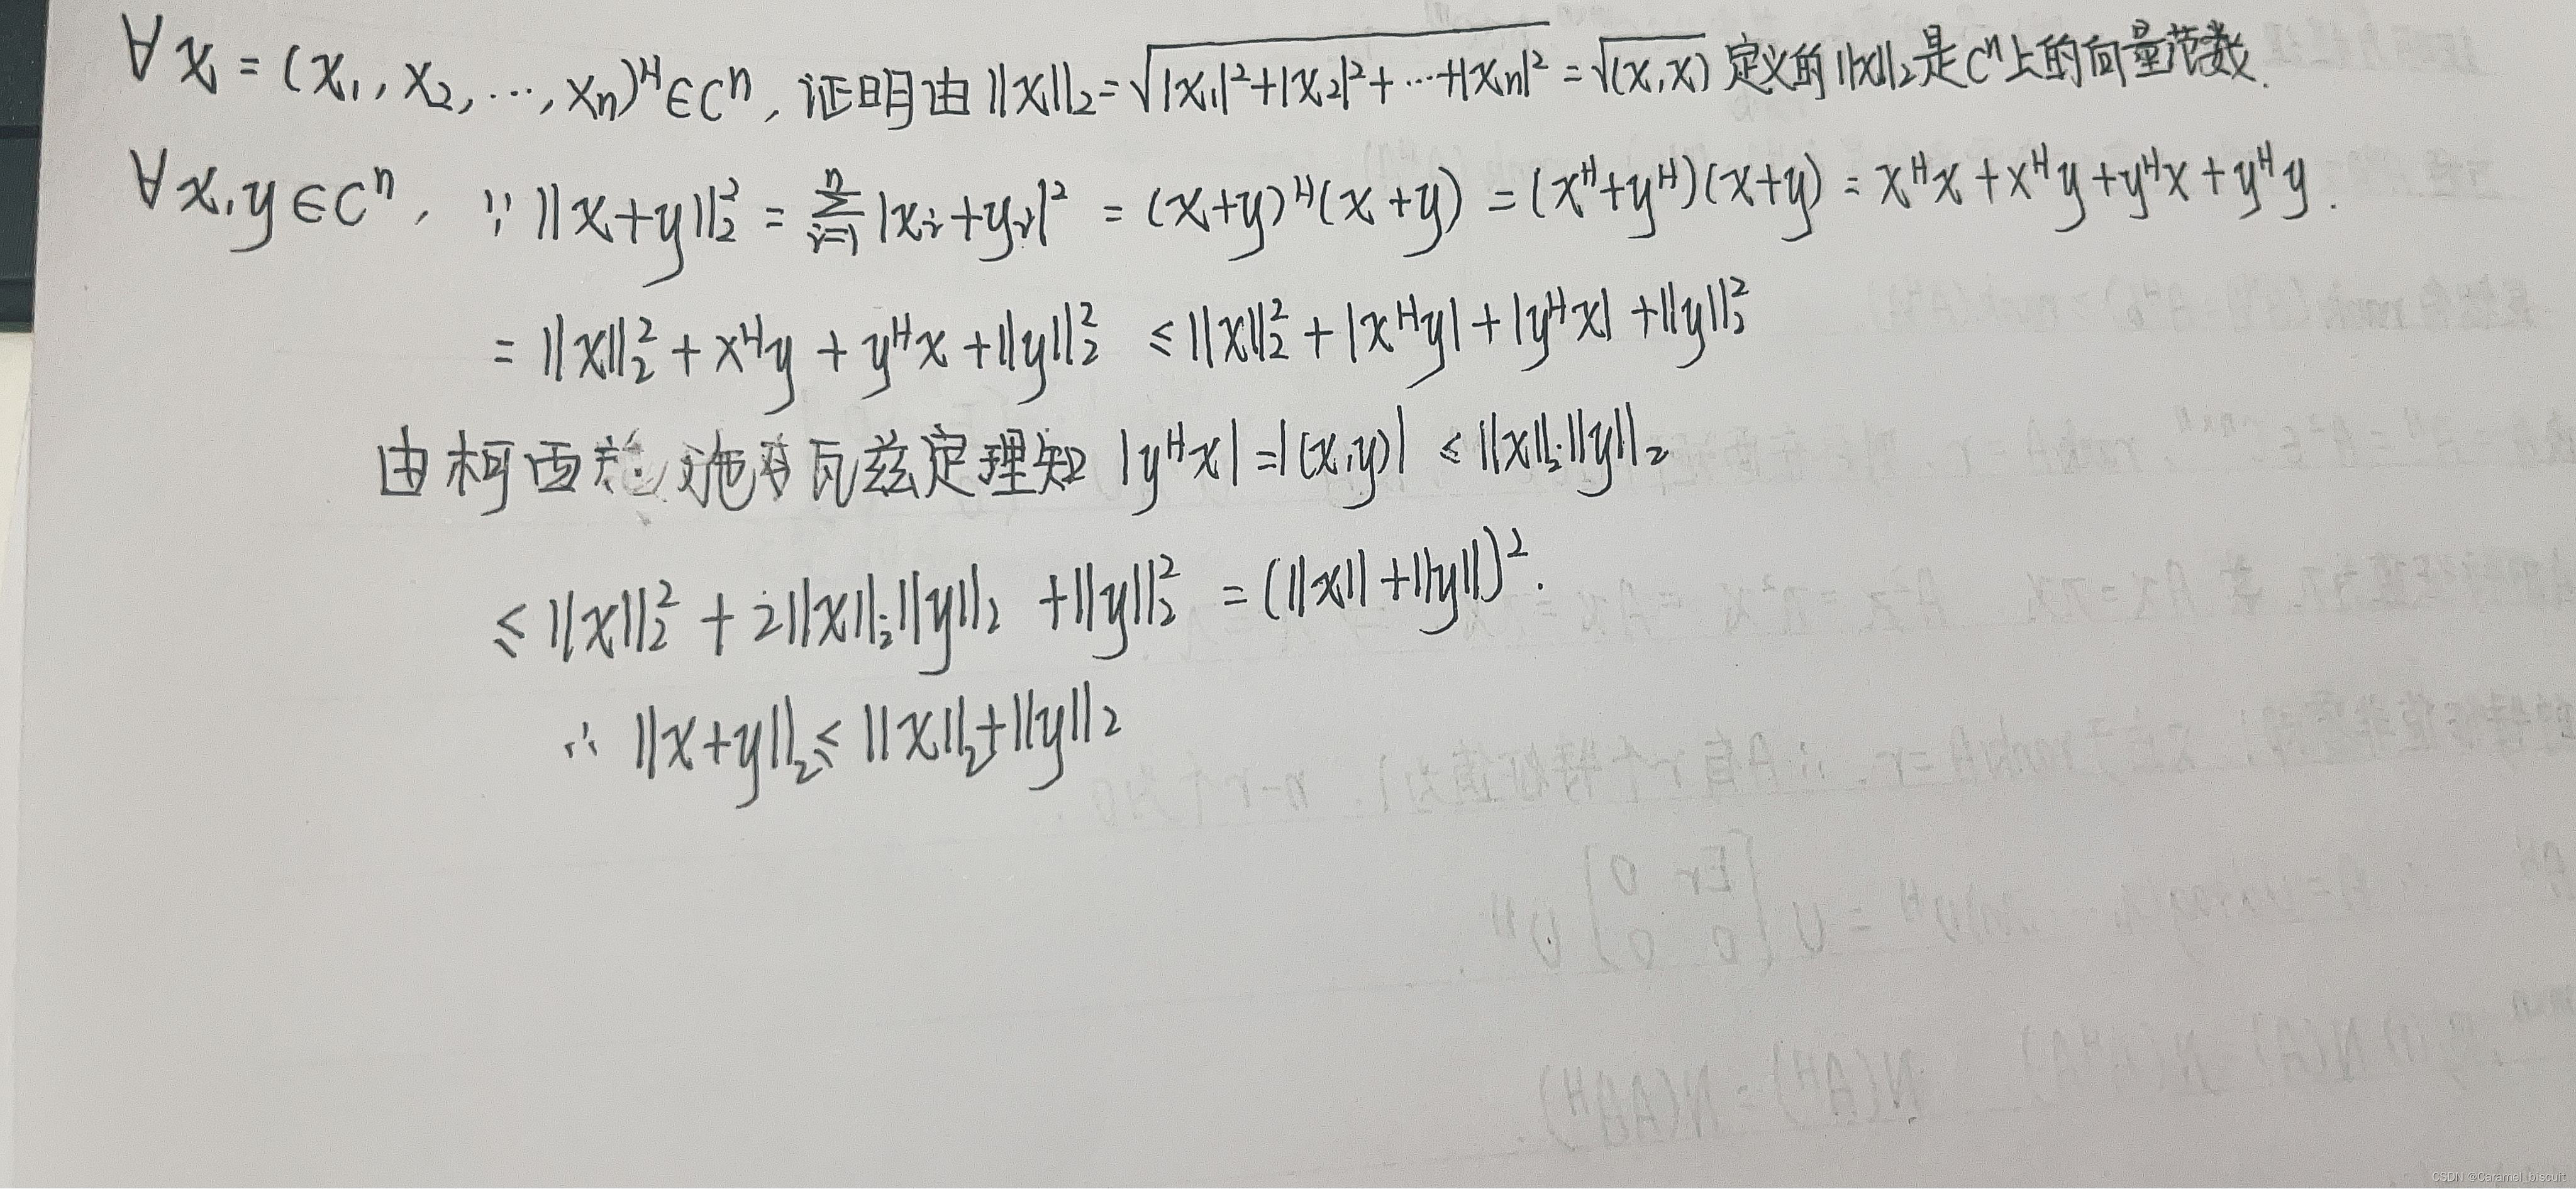 ∀x = (x₁, x₂, ⋯, xₙ)ᴴ∈Cⁿ, 证明由 ||x||₂ = √(|x₁|²+|x₂|²+⋯+|xₙ|²) = √(x,x) 定义的 ||x||₂ 是Cⁿ上的向量范数.
∀x,y∈Cⁿ, ∵ ||x+y||₂² = ∑ᵢ₌₁ⁿ |xᵢ+yᵢ|² = (x+y)ᴴ(x+y) = (xᴴ+yᴴ)(x+y) = xᴴx + xᴴy + yᴴx + yᴴy.
= ||x||₂² + xᴴy + yᴴx + ||y||₂² ≤ ||x||₂² + |xᴴy| + |yᴴx| + ||y||₂²
由柯西 施 瓦兹定理知 |yᴴx| = |(x,y)| ≤ ||x||₂||y||₂
≤ ||x||₂² + 2||x||₂||y||₂ + ||y||₂² = (||x||+||y||)².
∴ ||x+y||₂ ≤ ||x||₂+||y||₂
CSDN @Caramel_biscuit